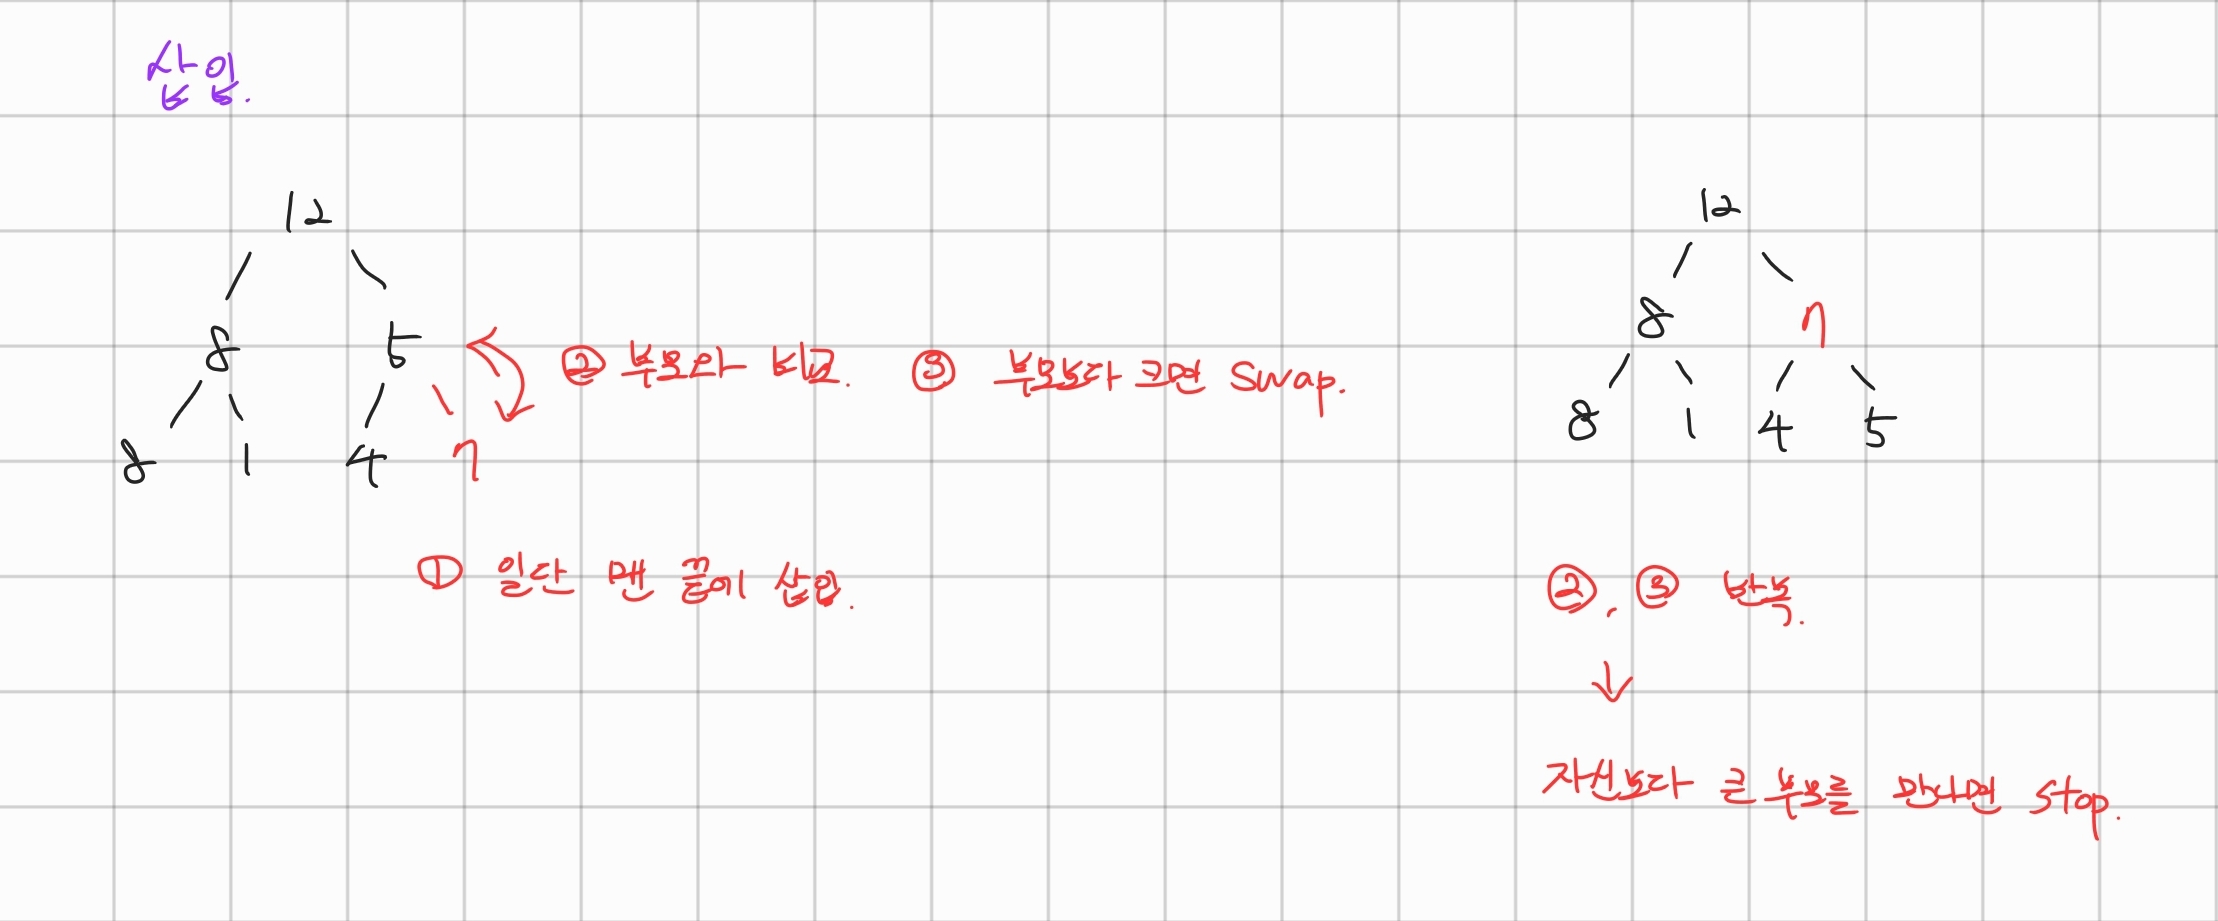 삽입.
12
8 5
8 1 4 7
② 부모와 비교. ③ 부모보다 크면 Swap.
① 일단 맨 끝에 삽입.
12
8 7
8 1 4 5
②, ③ 반복.
↓
자신보다 큰 부모를 만나면 Stop.